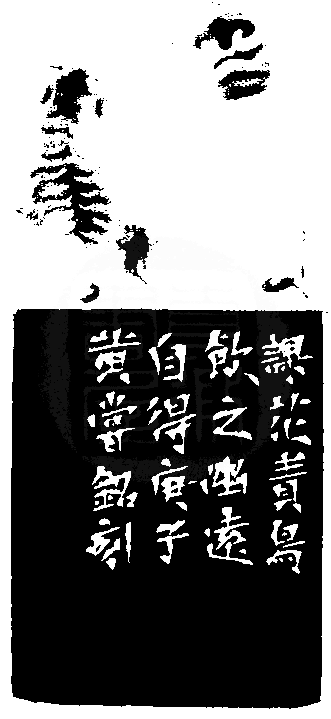 課花責鳥
飲之幽遠
自得庚子
黄嘗銘刻